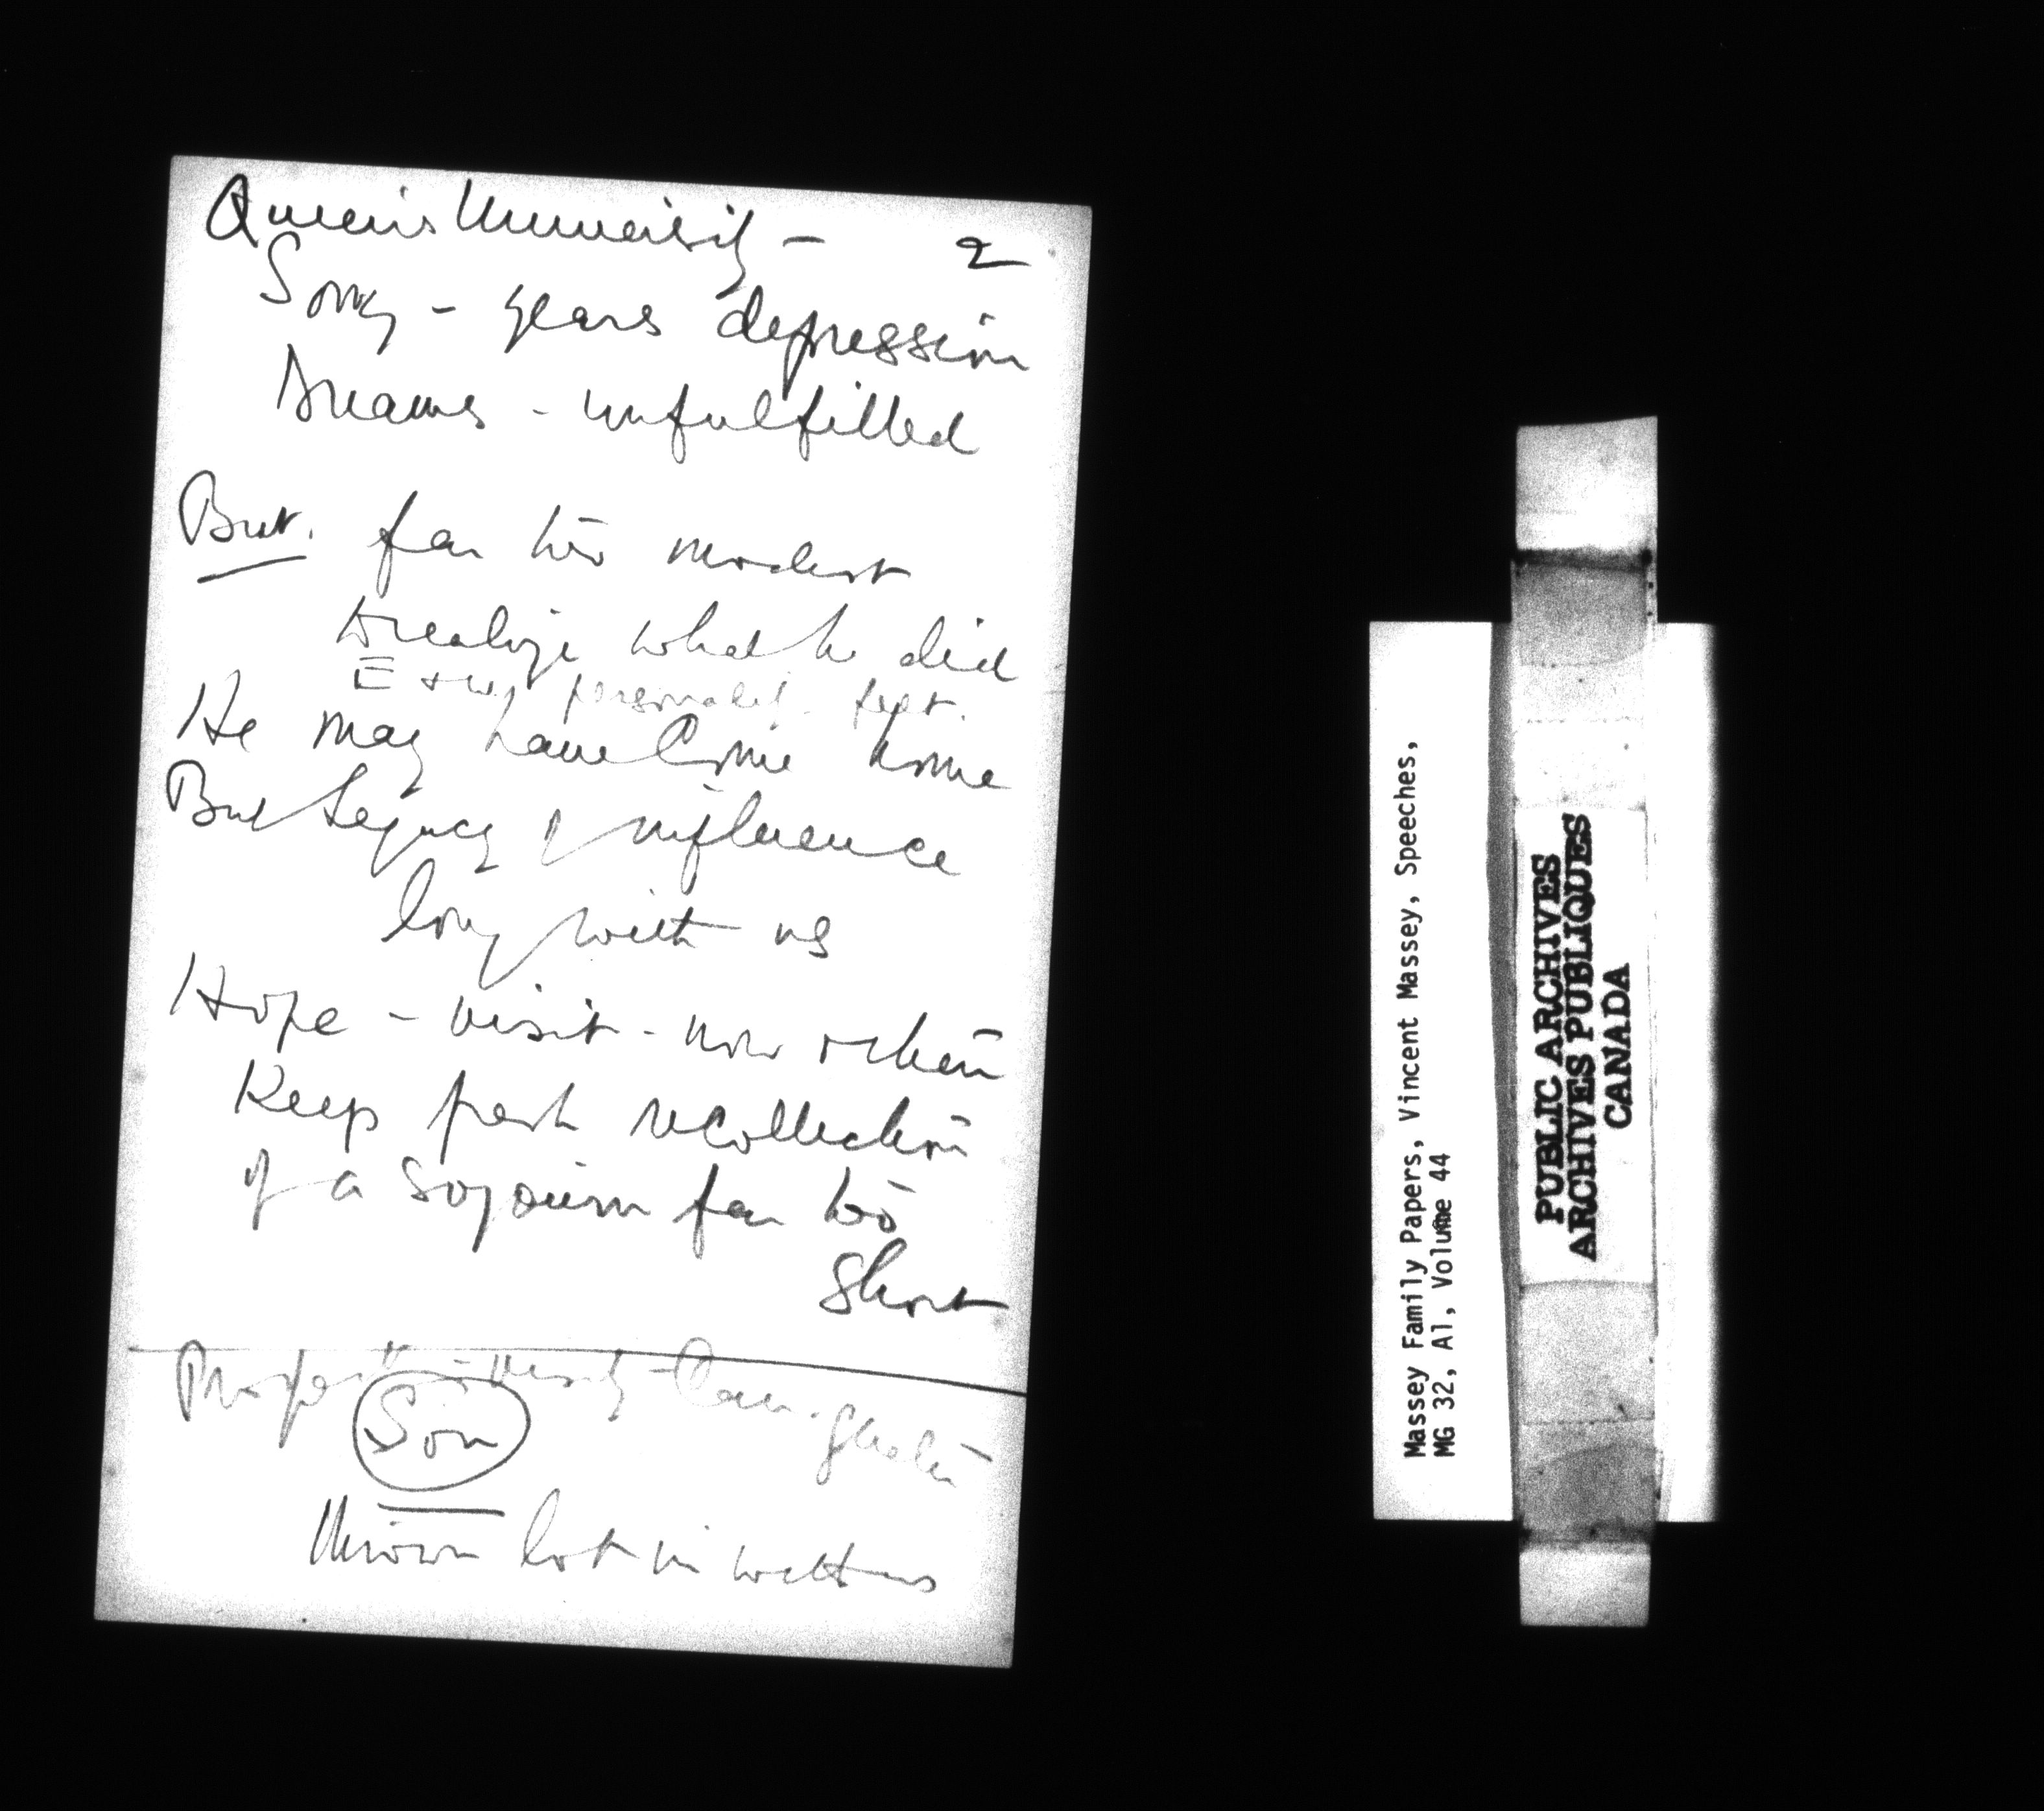 Queen's University - 2
Song - years depression
Dreams - unfulfilled
But. far too modest
to realize what he did
E personality felt.
He may have come home
But legacy of influence
long with us
Hope - visit - now & then
Keep fresh recollection
of a sojourn far too
short
Son
lot in with us
Massey Family Papers, Vincent Massey, Speeches,
MG 32, A1, Volume 44
PUBLIC ARCHIVES
ARCHIVES PUBLIQUES
CANADA